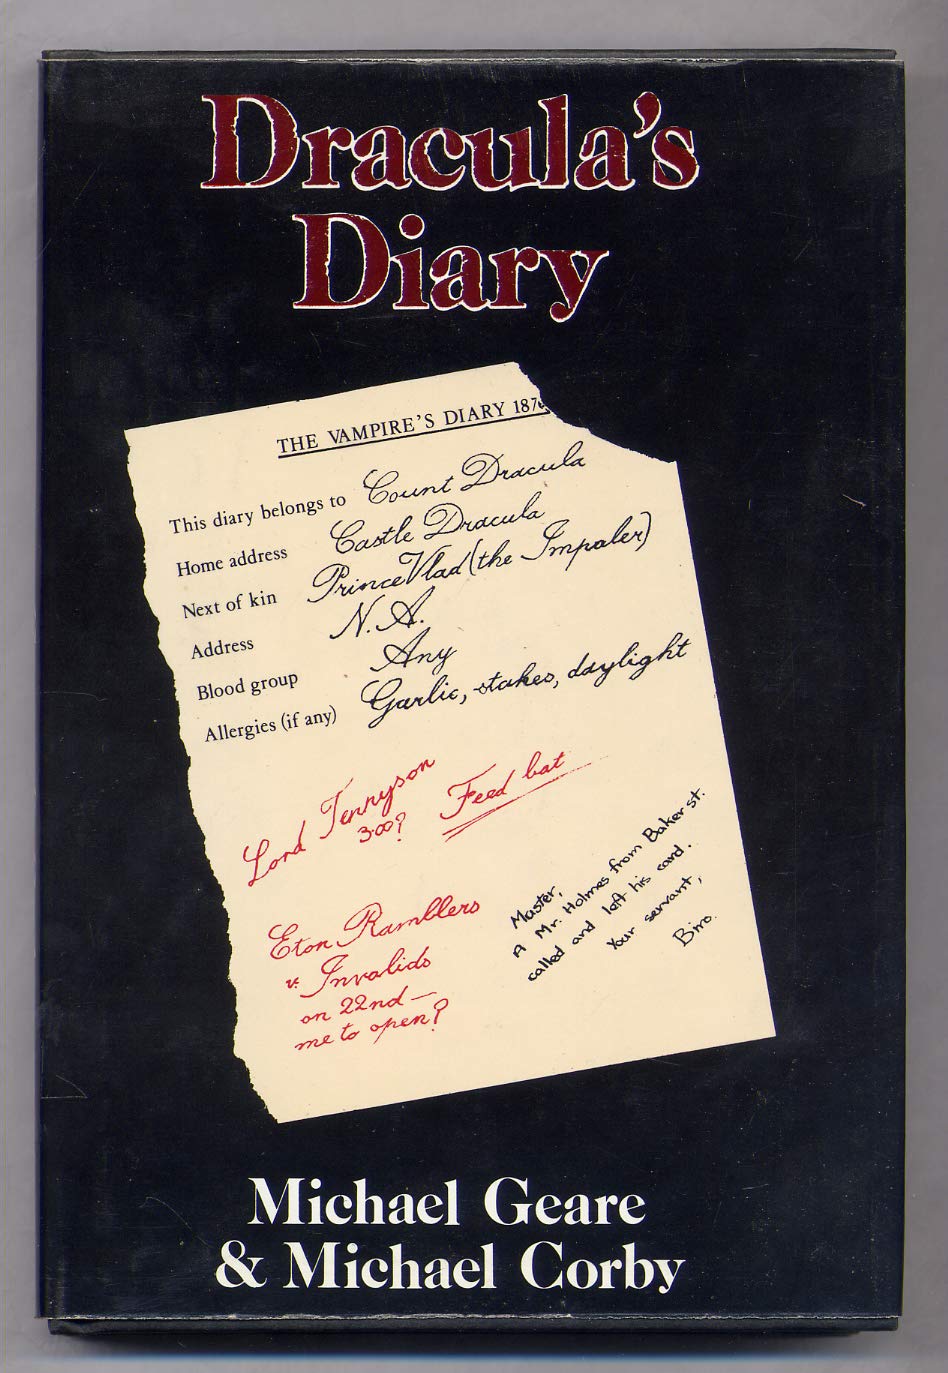 Dracula's
Diary
THE VAMPIRE'S DIARY 187
This diary belongs to Count Dracula
Home address Castle Dracula
Next of kin Prince Vlad (the Impaler)
Address N.A.
Blood group Any
Allergies (if any) Garlic, stakes, daylight
Lord Tennyson
3.00?
Feed bat
Eton Ramblers
v. Invalids
on 22nd —
me to open?
Master,
A Mr. Holmes from Baker st.
called and left his card.
Your servant,
Biro.
Michael Geare
& Michael Corby